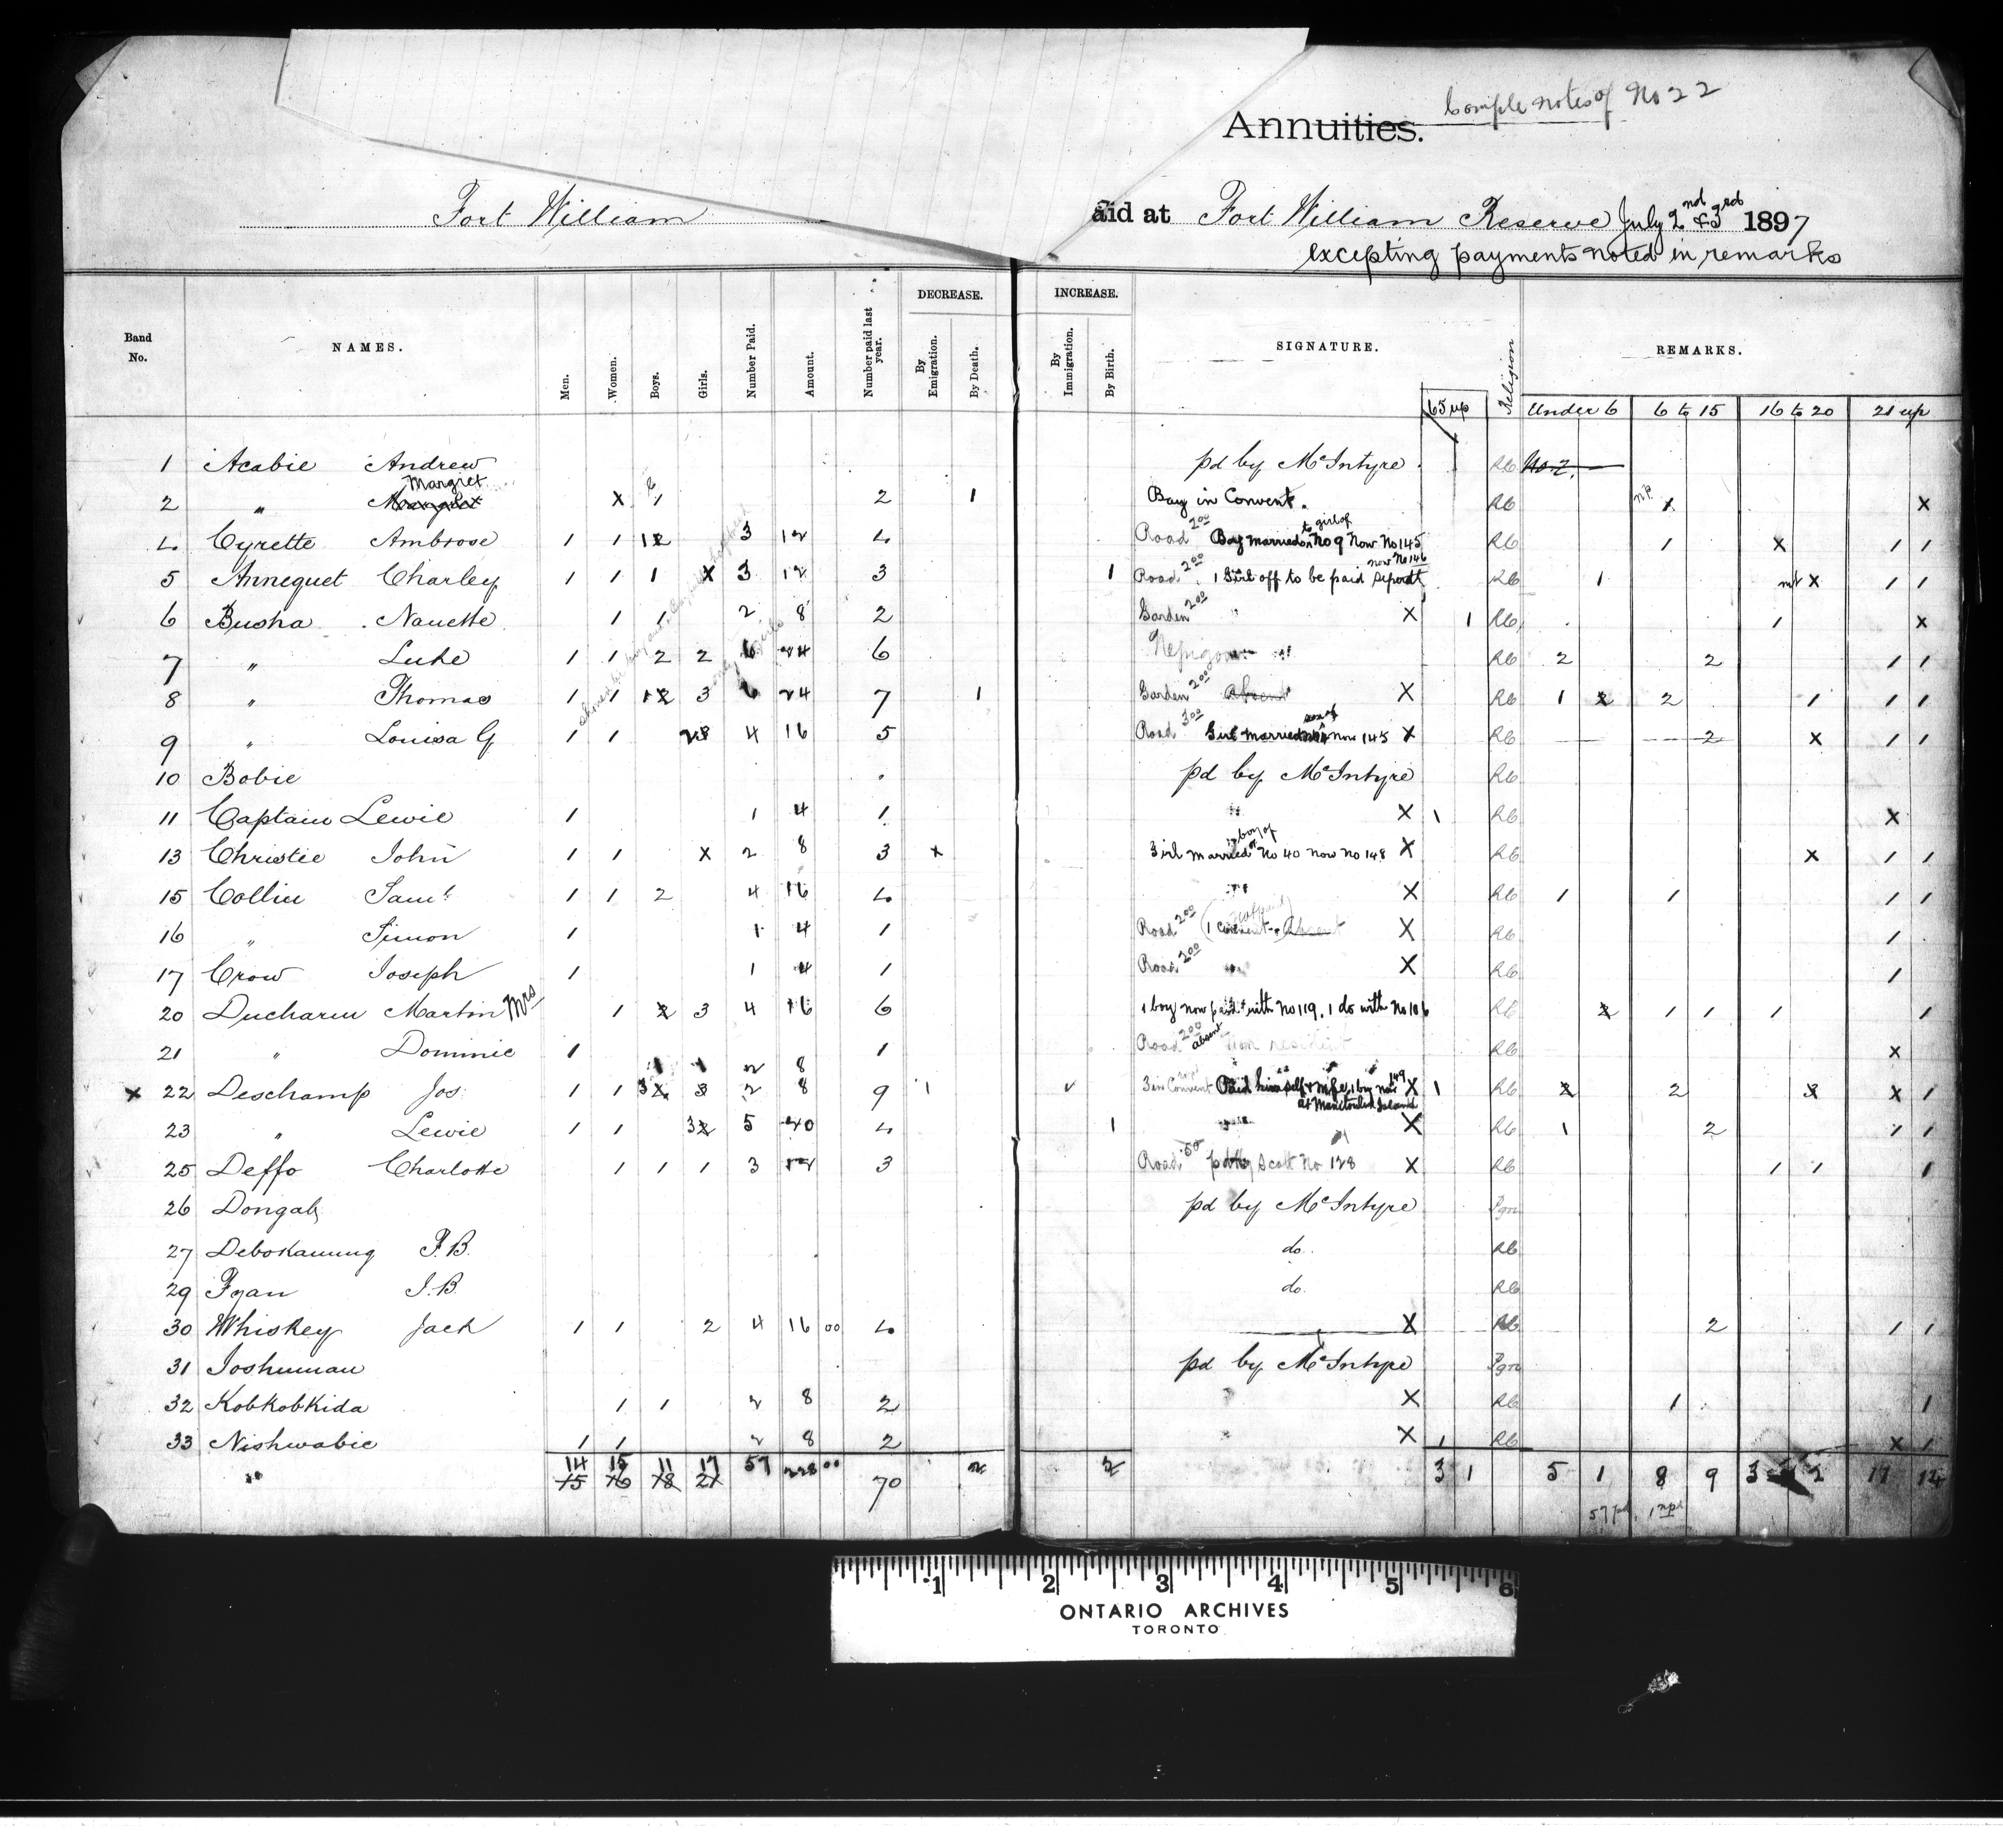 Comple notes of No 22
Annuities.
Fort William aid at Fort William Reserve July 2nd & 3rd 1897
excepting payments noted in remarks
Band No. NAMES. Men. Women. Boys. Girls. Number Paid. Amount. Number paid last year. DECREASE. By Emigration. By Death. INCREASE. By Immigration. By Birth. SIGNATURE. 65 up Religion REMARKS.
Under 6 6 to 15 16 to 20 21 up
1 Acabie Andrew pd by McIntyre RC No 2
Margret
2 " X 1 2 1 Boy in Convent. RC np 1 X
4 Cyrette Ambrose 1 1 12 3 12 4 Road 2 00 Boy married to girl of No 9 Now No 145 RC 1 X 1 1
now No 146
5 Annequet Charley 1 1 1 X 3 12 3 1 Road 2 00 1 Girl off to be paid RC 1 X 1 1
6 Busha Nanette 1 1 2 8 2 Garden 2 00 X 1 RC 1 X
7 " Luke 1 1 2 2 6 24 6 RC 2 2 1 1
8 " Thomas 1 1 12 3 6 24 7 1 Garden 2 00 Absent X RC 1 2 2 1 1 1
9 " Louisa G 1 1 23 4 16 5 Road 3 00 Girl married son of now 145 X RC 2 X 1 1
10 Bobie pd by McIntyre RC
11 Captain Lewie 1 1 4 1 X 1 RC X
13 Christie John 1 1 X 2 8 3 X Girl married to boy of No 40 now No 148 X RC X 1 1
15 Collin Saml 1 1 2 4 16 4 X RC 1 1 1 1
16 " Simon 1 1 4 1 Road 2 00 Absent X RC 1
17 Crow Joseph 1 1 4 1 Road 2 00 X RC 1
20 Ducharm Martin Mrs 1 2 3 4 16 6 1 boy now paid with No 119. 1 do with No 106 RC 2 1 1 1 1
21 " Dominic 1 1 Road 2 00 absent Non resident RC X
1 1 2 8
X 22 Deschamp Jos. 1 1 3 3 2 8 9 1 3 in Convent Paid himself & wife, 1 boy now 149 X 1 RC 2 2 3 X 1
at Manitoulin Island
23 " Lewie 1 1 32 5 20 4 1 X RC 1 2 1 1
25 Deffo Charlotte 1 1 1 3 12 3 Road .50 pd by Scott No 128 X RC 1 1 1
26 Dongab pd by McIntyre Pgn
27 Debokaunung J.B. do. RC
29 Fyan J.B. do. RC
30 Whiskey Jack 1 1 2 4 16 00 4 X RC 2 1 1
31 Joshunau pd by McIntyre Pgn
32 Kobkobkida 1 1 2 8 2 X RC 1 1
33 Nishwabie 1 1 2 8 2 X 1 RC X 1
14 15 11 17 57 228 00 2 2 3 1 5 1 8 9 3 2 11 14
15 16 18 21 70
57 pd. 1 npd
1 2 3 4 5 6
ONTARIO ARCHIVES
TORONTO